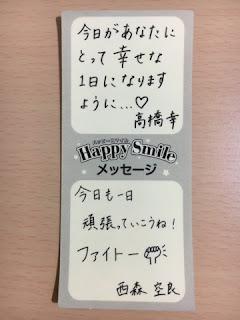 今日があなたに
とって幸せな
1日になります
ように...♡
高橋幸
ハッピースマイル
Happy Smile
メッセージ
今日も一日
頑張っていこうね!
ファイトー
西森 空良